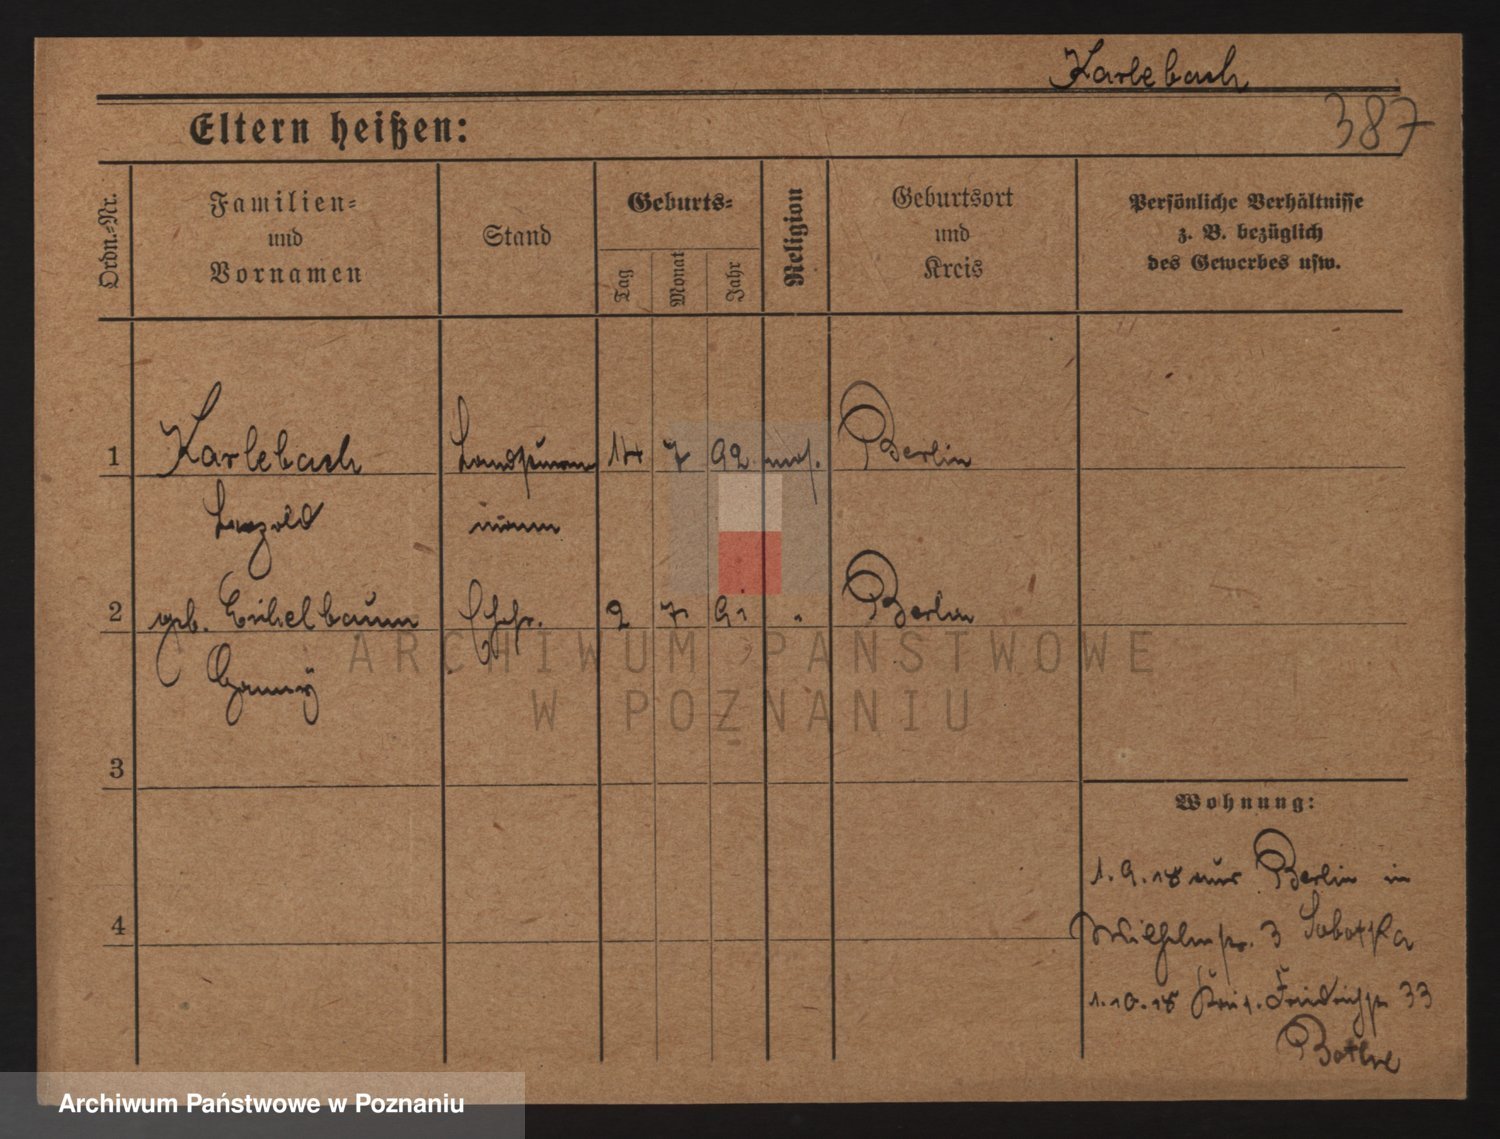 Karlebach
387
Eltern heißen:
Ordn.-Nr.
Familien- und Vornamen
Stand
Geburts-
Tag
Monat
Jahr
Religion
Geburtsort und Kreis
Persönliche Verhältnisse
z. B. bezüglich
des Gewerbes usw.
1 Karlebach 14 7 92 mos. Berlin
Leopold
2 geb. Eichelbaum Ehefr. 2 7 91 " Berlin
Fanny
3
Wohnung:
1.9.18 aus Berlin in
4
Wilhelmstr. 3 Sobotka
1.10.18 Friedrichstr 33
Bothe
ARCHIWUM PAŃSTWOWE
W POZNANIU
Archiwum Państwowe w Poznaniu